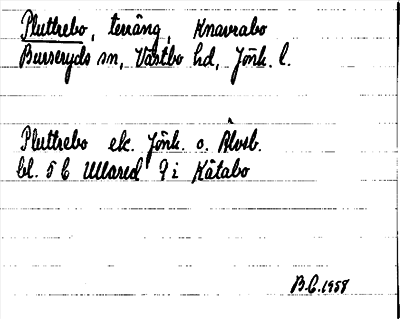 Pluttrebo, terräng, Knavrabo
Burseryds sn, Västbo hd, Jönk. l.
Pluttrebo ek. Jönk. o. Älvsb.
bl. 5 C Ullared 9 i Kåtabo
B.C. 1958